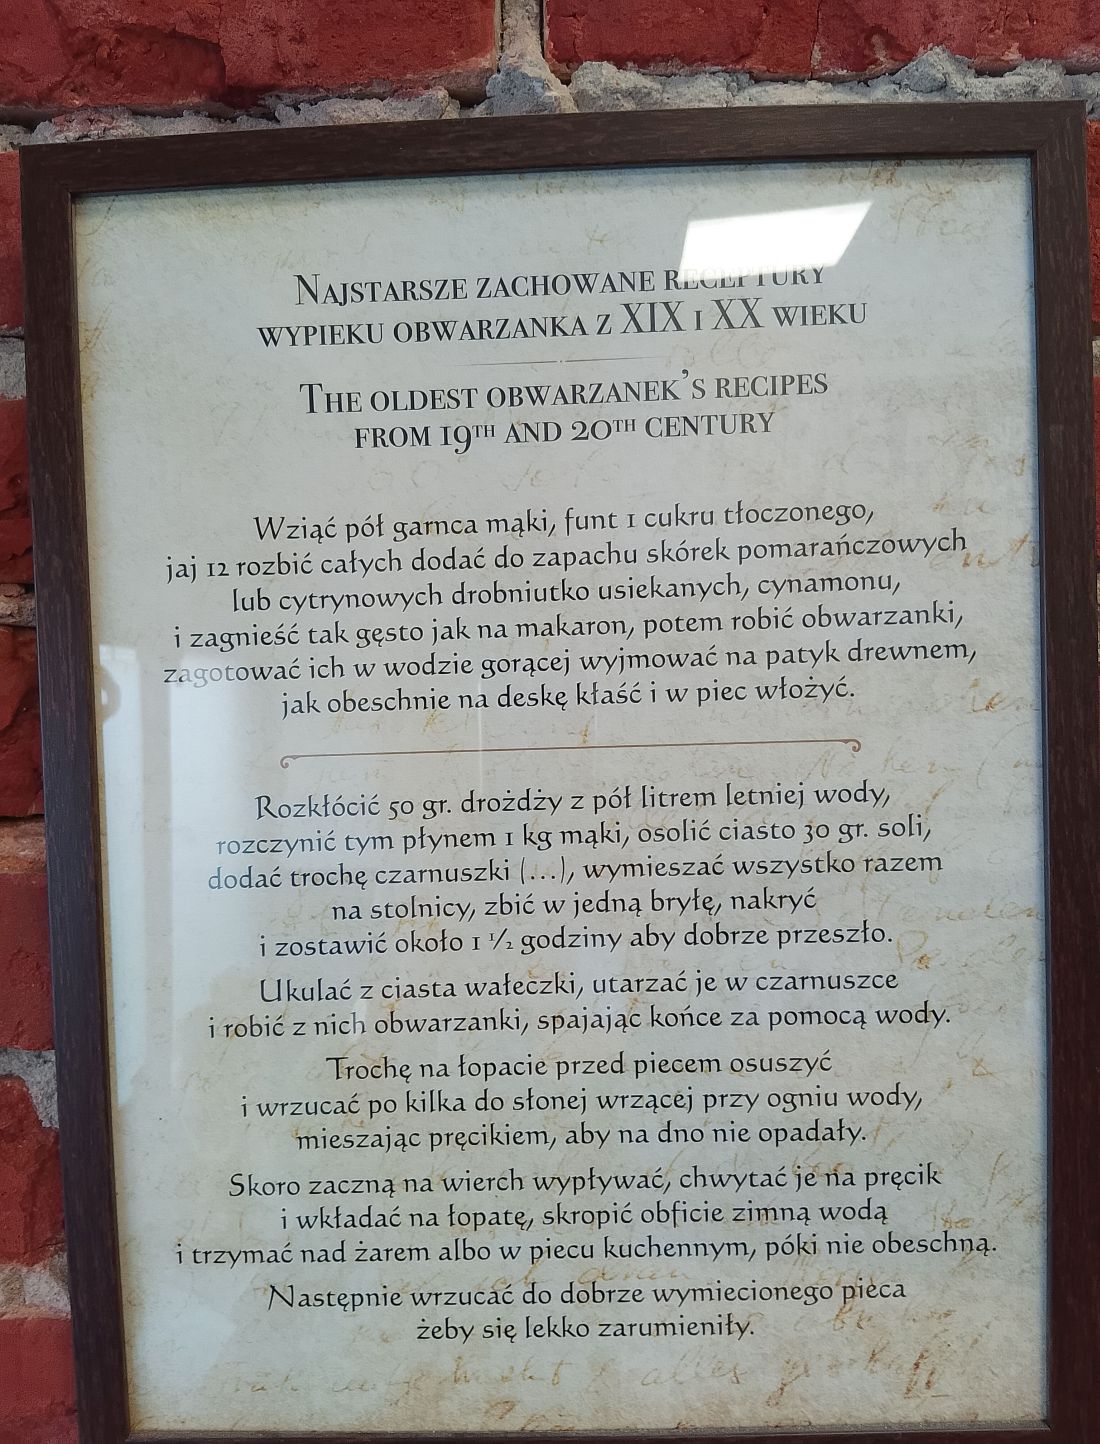 Najstarsze zachowane receptury
wypieku obwarzanka z XIX i XX wieku
The oldest obwarzanek's recipes
from 19th and 20th century
Wziąć pół garnca mąki, funt 1 cukru tłoczonego,
jaj 12 rozbić całych dodać do zapachu skórek pomarańczowych
lub cytrynowych drobniutko usiekanych, cynamonu,
i zagnieść tak gęsto jak na makaron, potem robić obwarzanki,
zagotować ich w wodzie gorącej wyjmować na patyk drewnem,
jak obeschnie na deskę kłaść i w piec włożyć.
Rozkłócić 50 gr. drożdży z pół litrem letniej wody,
rozczynić tym płynem 1 kg mąki, osolić ciasto 30 gr. soli,
dodać trochę czarnuszki (...), wymieszać wszystko razem
na stolnicy, zbić w jedną bryłę, nakryć
i zostawić około 1 1/2 godziny aby dobrze przeszło.
Ukulać z ciasta wałeczki, utarzać je w czarnuszce
i robić z nich obwarzanki, spajając końce za pomocą wody.
Trochę na łopacie przed piecem osuszyć
i wrzucać po kilka do słonej wrzącej przy ogniu wody,
mieszając pręcikiem, aby na dno nie opadały.
Skoro zaczną na wierch wypływać, chwytać je na pręcik
i wkładać na łopatę, skropić obficie zimną wodą
i trzymać nad żarem albo w piecu kuchennym, póki nie obeschną.
Następnie wrzucać do dobrze wymiecionego pieca
żeby się lekko zarumieniły.